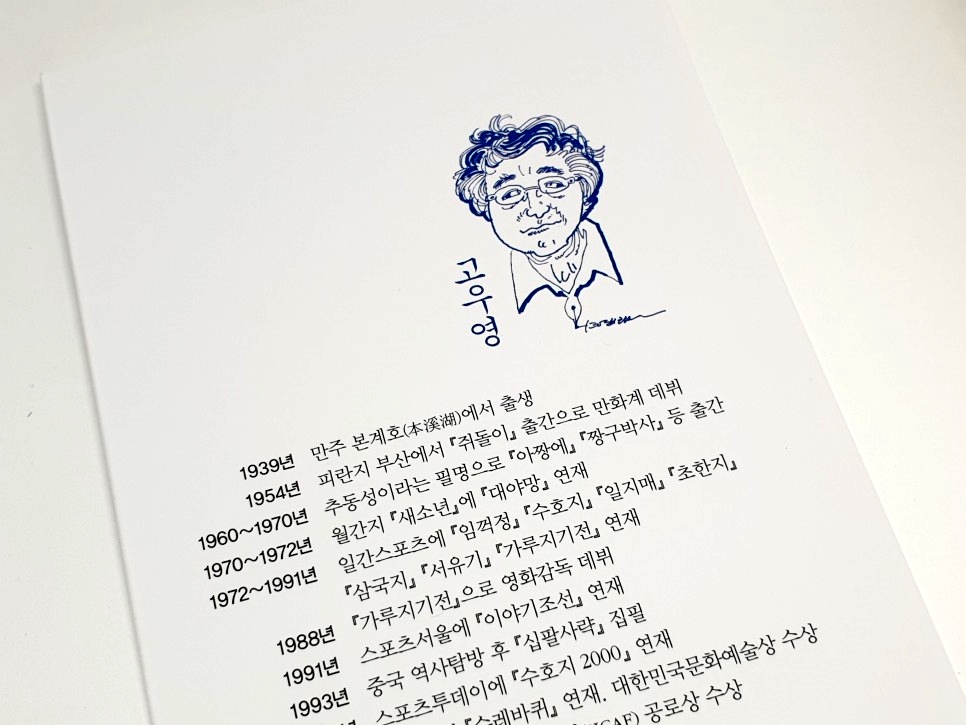 고우영
1939년 만주 본계호(本溪湖)에서 출생
1954년 피란지 부산에서 『쥐돌이』 출간으로 만화계 데뷔
1960~1970년 추동성이라는 필명으로 『아짱에』, 『짱구박사』 등 출간
1970~1972년 월간지 『새소년』에 『대야망』 연재
1972~1991년 일간스포츠에 『임꺽정』, 『수호지』, 『일지매』, 『초한지』,
『삼국지』, 『서유기』, 『가루지기전』 연재
1988년 『가루지기전』으로 영화감독 데뷔
1991년 스포츠서울에 『이야기조선』 연재
1993년 중국 역사탐방 후 『십팔사략』 집필
스포츠투데이에 『수호지 2000』 연재
『수레바퀴』 연재. 대한민국문화예술상 수상
공로상 수상